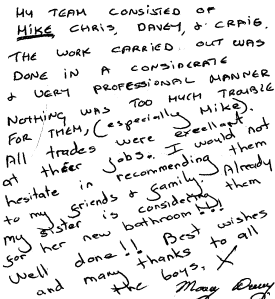 MY TEAM CONSISTED OF
MIKE, CHRIS, DAVEY, & CRAIG.
THE WORK CARRIED OUT WAS
DONE IN A CONSIDERATE
& VERY PROFESSIONAL MANNER
NOTHING WAS TOO MUCH TROUBLE
FOR THEM, (especially Mike).
All trades were excellent
at their jobs. I would not
hesitate in recommending them
to my friends & family. Already
my sister is considering them
for her new bathroom!!!
Well done!! Best wishes
and many thanks to all
the boys, X